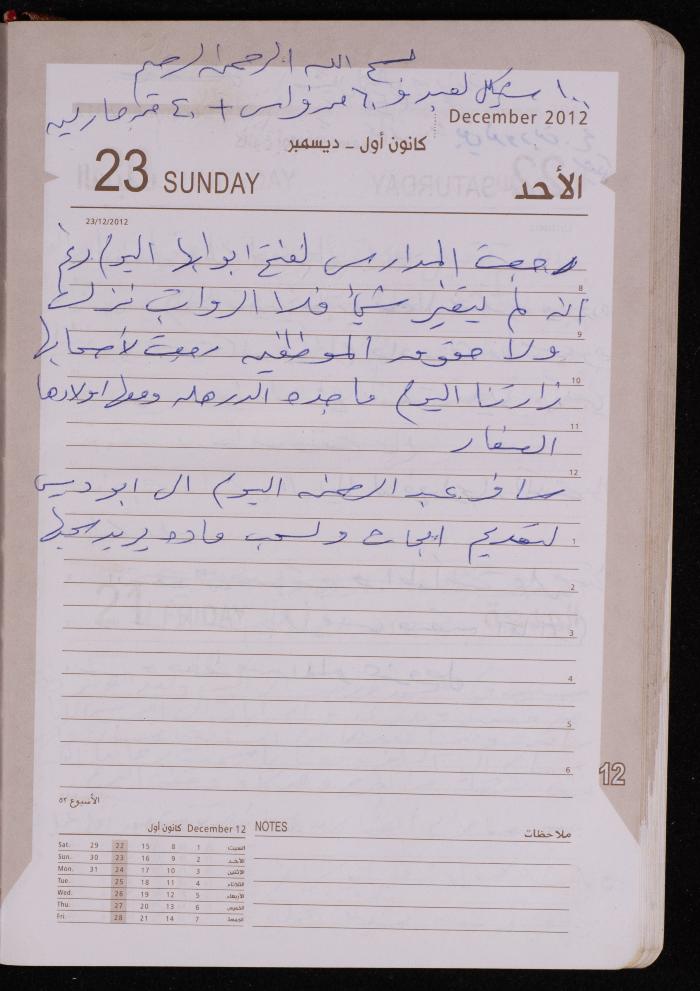 بسم الله الرحمن الرحيم
١٠٠ شيكل لعبد ٦٠ + ٤٠
December 2012
كانون أول - ديسمبر
23 SUNDAY
الأحد
23/12/2012
رجعت المدارس لفتح ابوابها اليوم رغم
8
انه لم يتغير شيئ فلا الرواتب نزلت
9
ولا حقوق الموظفين رجعت لأصحابها
10
زارتنا اليوم ماجده ومعها اولادها
11
الصغار
12
سافر عبد اليوم الى ابو ديس
لتقديم ابحاث ولسحب ماده يريد سحبها
1
2
3
4
5
6
12
الأسبوع ٥٢
December 12 كانون أول
Sat. 29 22 15 8 1 السبت
Sun. 30 23 16 9 2 الأحد
Mon. 31 24 17 10 3 الاثنين
Tue. 25 18 11 4 الثلاثاء
Wed. 26 19 12 5 الأربعاء
Thu. 27 20 13 6 الخميس
Fri. 28 21 14 7 الجمعة
NOTES ملاحظات